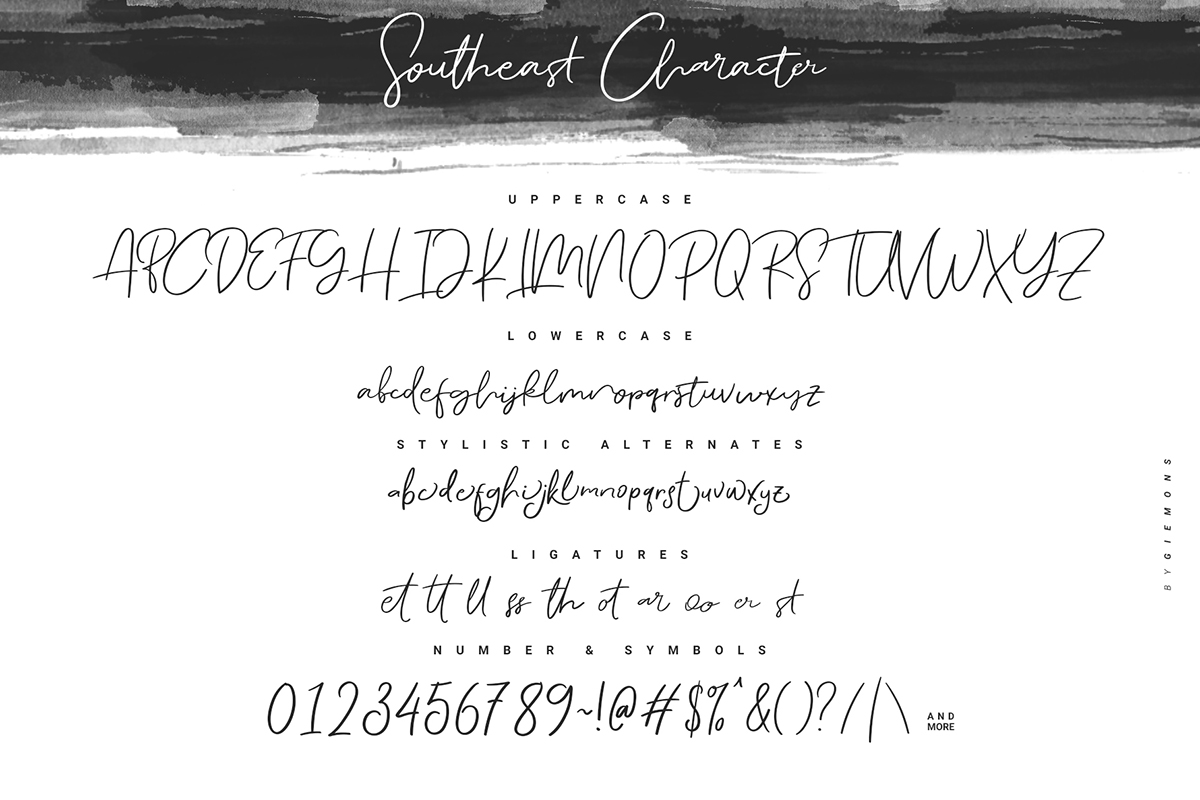 Southeast Character
UPPERCASE
ABCDEFGHIJKLMNOPQRSTUVWXYZ
LOWERCASE
abcdefghijklmnopqrstuvwxyz
STYLISTIC ALTERNATES
abcdefghijklmnopqrstuvwxyz
LIGATURES
et tt ll ss th ot ar oo er st
NUMBER & SYMBOLS
0123456789~!@#$%^&()?/|\
AND
MORE
BY GIEMONS